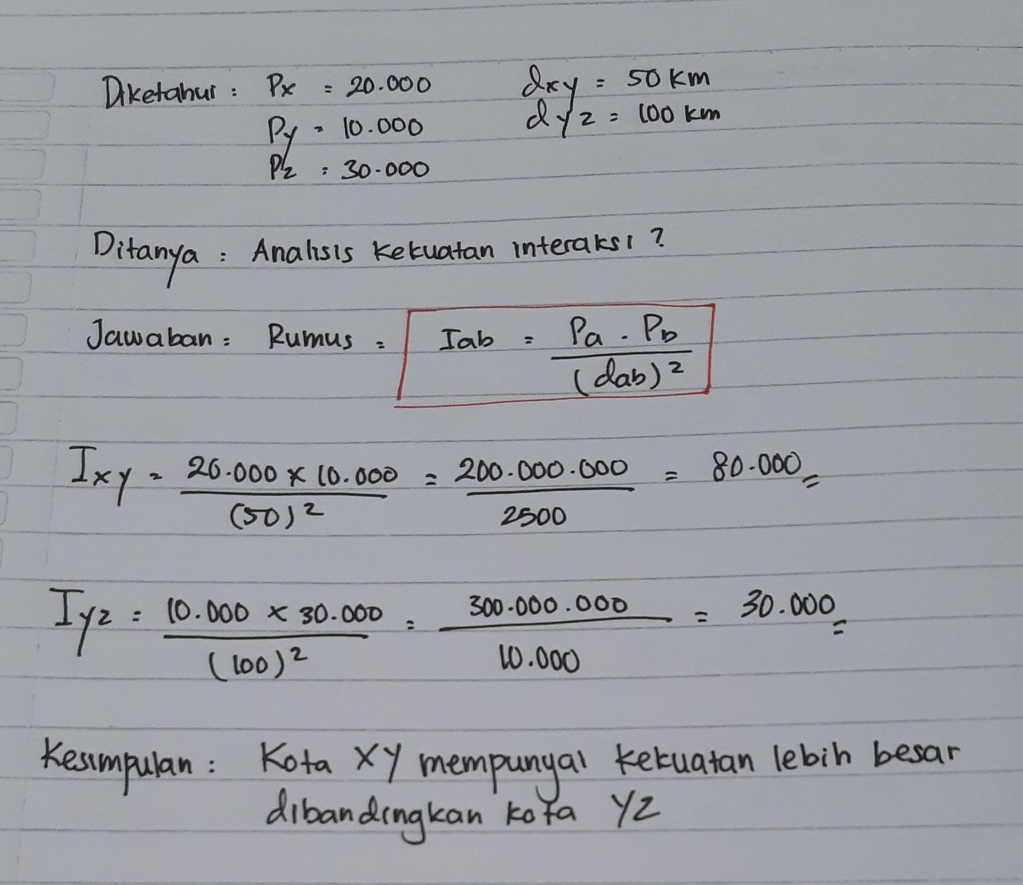 Diketahui : Px = 20.000 dxy = 50 km
Py = 10.000 dyz = 100 km
Pz : 30.000
Ditanya : Analisis kekuatan interaksi ?
Jawaban : Rumus = Iab = Pa . Pb / (dab)²
Ixy = 20.000 x 10.000 / (50)² = 200.000.000 / 2500 = 80.000
Iyz = 10.000 x 30.000 / (100)² = 300.000.000 / 10.000 = 30.000
Kesimpulan : Kota XY mempunyai kekuatan lebih besar
dibandingkan kota YZ